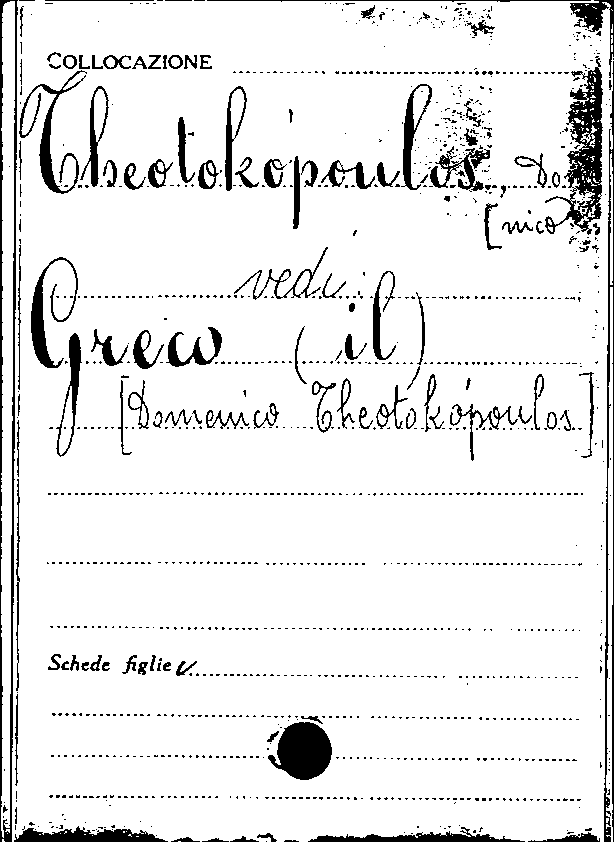 COLLOCAZIONE
Theotokópoulos, Do
[nico
vedi:
Greco (il)
[Domenico Theotokópoulos]
Schede figlie